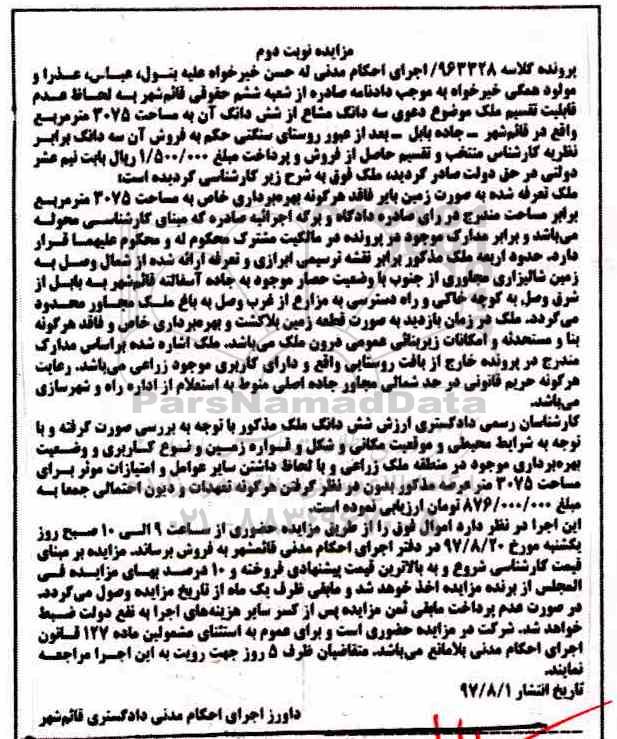 مزایده نوبت دوم
پرونده کلاسه ۹۶۳۳۲۸/ اجرای احکام مدنی له حسن خیرخواه علیه بتول، عباس، عذرا و
مولود همگی خیرخواه به موجب دادنامه صادره از شعبه ششم حقوقی قائم‌شهر به لحاظ عدم
قابلیت تقسیم ملک موضوع دعوی سه دانگ مشاع از شش دانگ آن به مساحت ۳۰۷۵ مترمربع
واقع در قائم‌شهر ـ جاده بابل ـ بعد از عبور روستای سنگتی حکم به فروش آن سه دانگ برابر
نظریه کارشناس منتخب و تقسیم حاصل از فروش و پرداخت مبلغ ۱/۵۰۰/۰۰۰ ریال بابت نیم عشر
دولتی در حق دولت صادر گردید، ملک فوق به شرح زیر کارشناسی گردیده است:
ملک تعرفه شده به صورت زمین بایر فاقد هرگونه بهره‌برداری خاص به مساحت ۳۰۷۵ مترمربع
برابر مساحت مندرج در رای صادره دادگاه و برگه اجرائیه صادره که مبنای کارشناسی محوله
می‌باشد و برابر مدارک موجود در پرونده در مالکیت مشترک محکوم له و محکوم علیهما قرار
دارد. حدود اربعه ملک مذکور برابر نقشه ترسیمی ابرازی و تعرفه ارائه شده از شمال وصل به
زمین شالیزاری مجاوری از جنوب با وضعیت حصار موجود به جاده آسفالته قائم‌شهر به بابل از
شرق وصل به کوچه خاکی و راه دسترسی به مزارع از غرب وصل به باغ ملک مجاور محدود
می‌گردد. ملک در زمان بازدید به صورت قطعه زمین بلاکشت و بهره‌برداری خاص و فاقد هرگونه
بنا و مستحدثه و امکانات زیربنائی عمومی درون ملک می‌باشد. ملک اشاره شده براساس مدارک
مندرج در پرونده خارج از بافت روستایی واقع و دارای کاربری موجود زراعی می‌باشد. رعایت
هرگونه حریم قانونی در حد شمالی مجاور جاده اصلی منوط به استعلام از اداره راه و شهرسازی
می‌باشد.
ParsNamadData
کارشناسان رسمی دادگستری ارزش شش دانگ ملک مذکور با توجه به بررسی صورت گرفته و با
توجه به شرایط محیطی و موقعیت مکانی و شکل و قواره زمین و نوع کاربری و وضعیت
بهره‌برداری موجود در منطقه ملک زراعی و با لحاظ داشتن سایر عوامل و امتیازات موثر برای
مساحت ۳۰۷۵ مترعرصه مذکور بدون در نظر گرفتن هرگونه تعهدات و دیون احتمالی جمعا به
مبلغ ۸۷۶/۰۰۰/۰۰۰ تومان ارزیابی نموده است.
این اجرا در نظر دارد اموال فوق را از طریق مزایده حضوری از ساعت ۹ الی ۱۰ صبح روز
یکشنبه مورخ ۹۷/۸/۲۰ در دفتر اجرای احکام مدنی قائمشهر به فروش برساند. مزایده بر مبنای
قیمت کارشناسی شروع و به بالاترین قیمت پیشنهادی فروخته و ۱۰ درصد بهای مزایده فی
المجلس از برنده مزایده اخذ خواهد شد و مابقی ظرف یک ماه از تاریخ مزایده وصول می‌گردد.
در صورت عدم پرداخت مابقی ثمن مزایده پس از کسر سایر هزینه‌های اجرا به نفع دولت ضبط
خواهد شد. شرکت در مزایده حضوری است و برای عموم به استثنای مشمولین ماده ۱۲۷ قانون
اجرای احکام مدنی بلامانع می‌باشد. متقاضیان ظرف ۵ روز جهت رویت به این اجرا مراجعه
نمایند.
تاریخ انتشار ۹۷/۸/۱
داورز اجرای احکام مدنی دادگستری قائم‌شهر